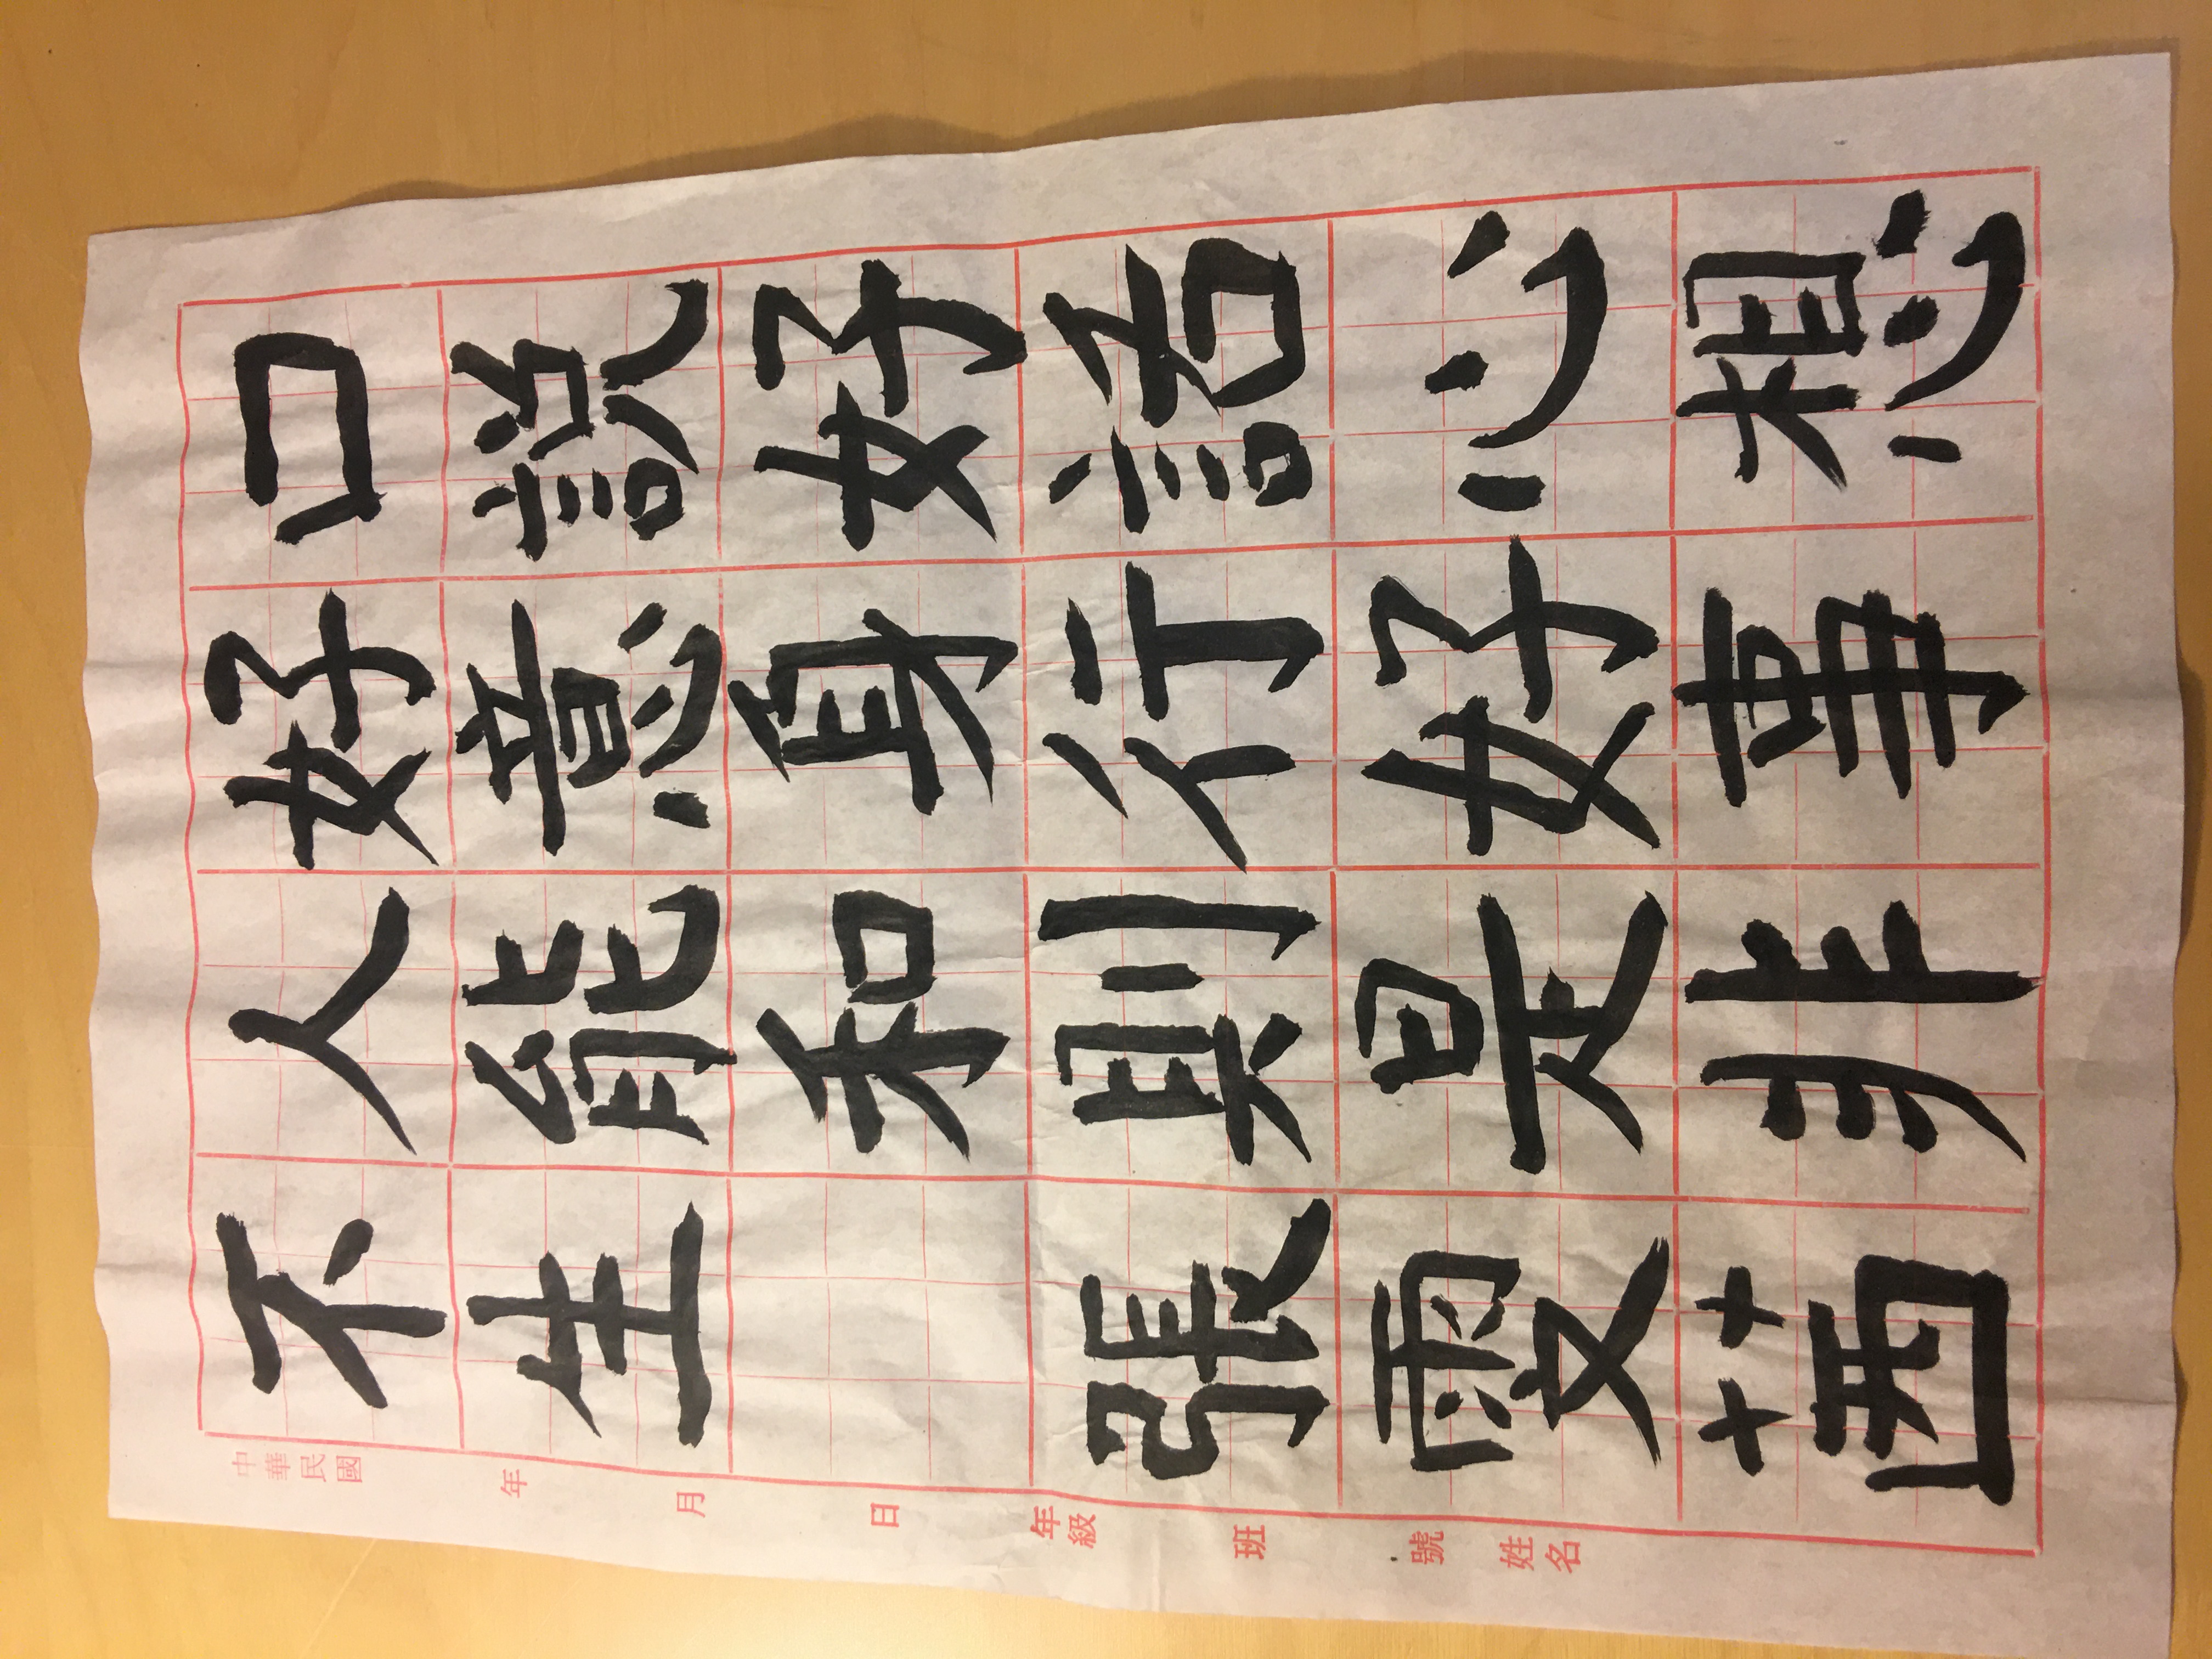 口說好話心想
好意身行好事
人能和則是非
不生張雯茜
中華民國 年 月 日 年級 班 號 姓名